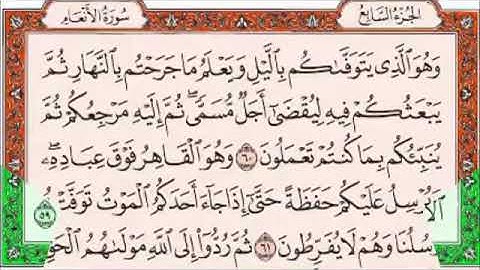 الجُزْءُ السَّابِعُ
سُورَةُ الأَنْعَامِ
وَهُوَ ٱلَّذِى يَتَوَفَّىٰكُم بِٱلَّيْلِ وَيَعْلَمُ مَا جَرَحْتُم بِٱلنَّهَارِ ثُمَّ
يَبْعَثُكُمْ فِيهِ لِيُقْضَىٰٓ أَجَلٌ مُّسَمًّى ۖ ثُمَّ إِلَيْهِ مَرْجِعُكُمْ ثُمَّ
يُنَبِّئُكُم بِمَا كُنتُمْ تَعْمَلُونَ ٦٠ وَهُوَ ٱلْقَاهِرُ فَوْقَ عِبَادِهِۦ ۖ
عَلَيْكُمْ حَفَظَةً حَتَّىٰٓ إِذَا جَآءَ أَحَدَكُمُ ٱلْمَوْتُ تَوَفَّتْ ٥٩
سُلُنَا وَهُمْ لَا يُفَرِّطُونَ ٦١ ثُمَّ رُدُّوٓا۟ إِلَى ٱللَّهِ مَوْلَىٰهُمُ